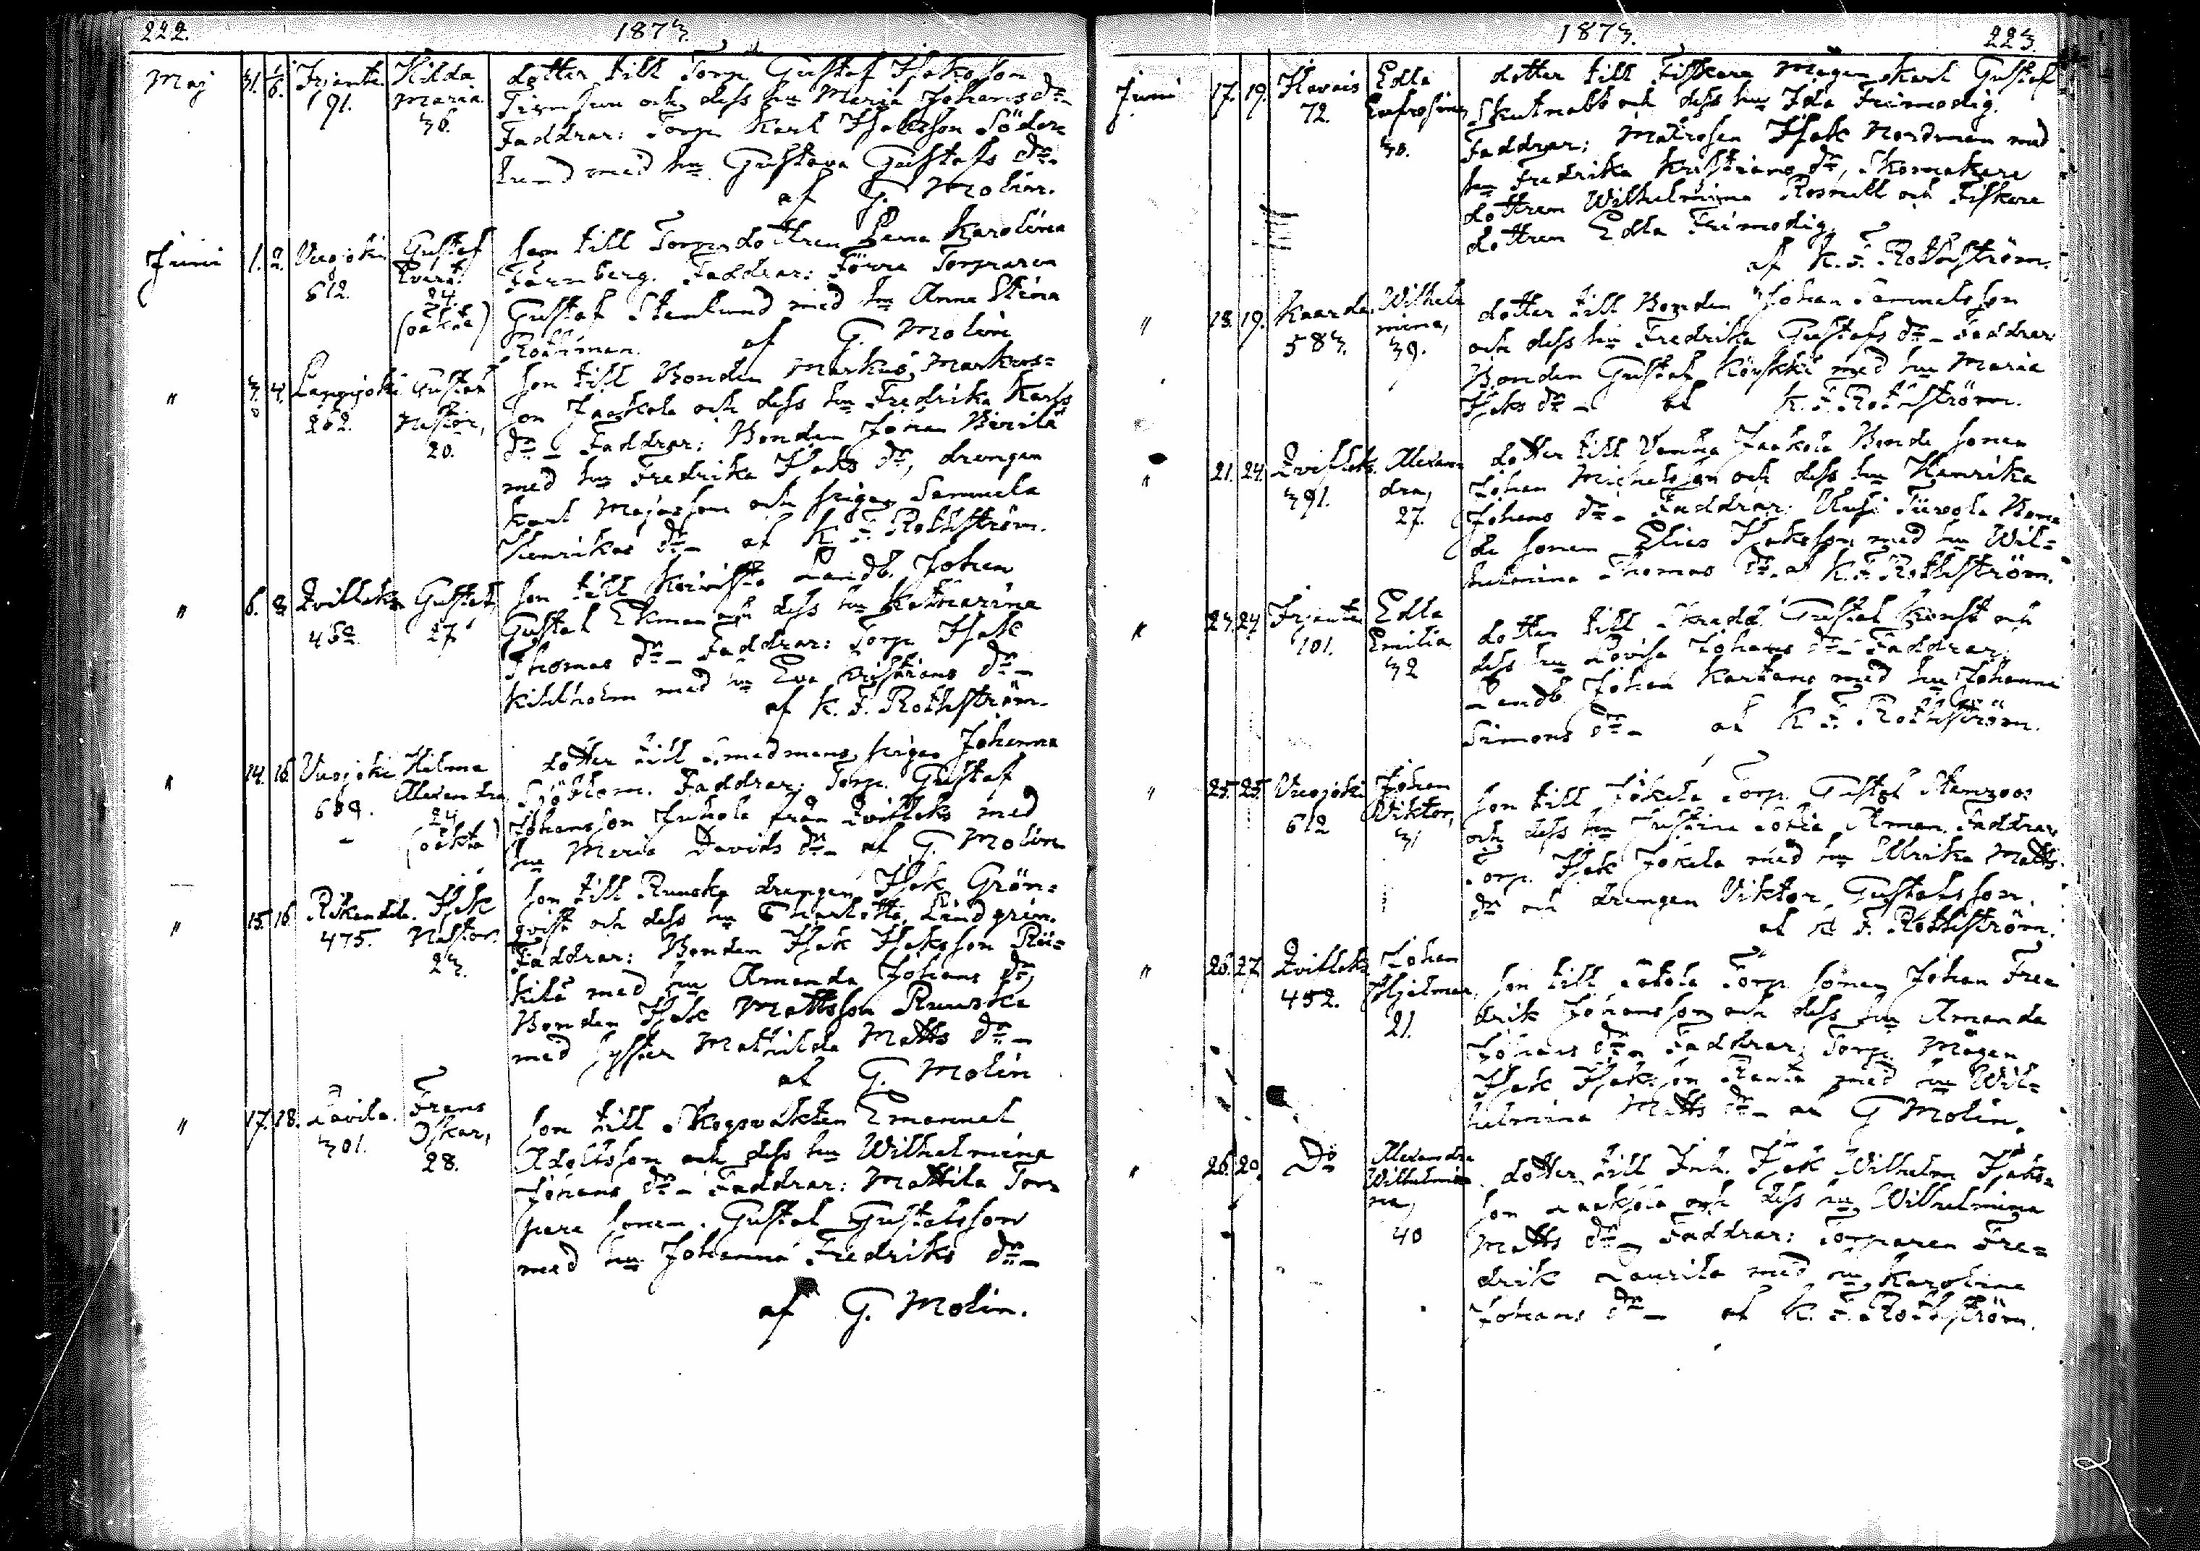 222.
1873.
Maj 31. 1/6. Irjante 191. Hilda Maria 36.
dotter till Torp. Gustaf Isaksson
och dess hu Maria Johans dr
Faddrar: Torp. Karl Isaksson Söder-
lund med hu Gustava Gustafs dr.
af G. Molin.
Juni 1. 2. Vuojoki 612. Gustaf Evert. 24. (oäkta)
Son till Torp. dottren Lena Karolina
Färmberg. Faddrar: Förre Torparen
Gustaf Stenlund med hu Anna Stina
Rothman. af G. Molin
" 3. 4. Lappijoki 262. Gustaf Nestor, 20.
Son till Bonden Markus Markus-
son Jaakola och dess hu Fredrika Karls
dr – Faddrar: Bonden Johan
med hu Fredrika Isaks dr, drengen
Karl Majasson och pigan Samuela
Henriks dr – af K. F. Rothström.
" 6. 8. Lvillaks 452. Gustaf, 27
Son till Landb. Johan
Gustaf Ekman och dess hu Katharina
Thomas dr – Faddrar: Torp. Isak
Kihlholm med hu Eva Kristians dr –
af K. F. Rothström.
" 14. 15. Vuojoki 689. Hilma Alexandra 24 (oäkta)
dotter till Smedmans pigan Johanna
Sjöblom. Faddrar: Torp. Gustaf
Johansson Juhola från Lvillaks med
hu Maria Davids dr – af G. Molin
" 15. 16. 475. Isak Nestor. 23.
Son till Ruuska drengen Isak Grön-
qvist och dess hu Charlotta Lindgrén.
Faddrar: Bonden Isak Isaksson Rii-
kilä med hu Amanda Johans dr,
Bonden Isak Mattsson Ruuska
med syster Mathilda Matts dr –
af G. Molin
" 17. 18. Lavila. 301. Frans Oskar, 28.
Son till Skogsvakten Emanuel
Adolfsson och dess hu Wilhelmina
Johans dr – Faddrar: Mattila Tor-
pare sonen Gustaf Gustafsson
med hu Johanna Fredriks dr –
af G. Molin.
1873.
223.
Juni 17. 19. 72. Edla Eufrosina 30.
dotter till Fiskare Mågen Karl Gustaf
Skutnabb och dess hu Ida Frimodig.
Faddrar: Matrosen Isak Nordman med
hu Fredrika Kristians dr, Skomakare
dottren Wilhelmina Rosnell och Fiskare
dottren Edla Frimodig.
af K. F. Rothström.
" 18. 19. Kaaro 583. Wilhelmina, 39.
dotter till Bonden Johan Samuelsson
och dess hu Fredrika Gustafs dr – Faddrar
Bonden Gustaf Köykkä med hu Maria
Isaks dr – af K. F. Rothström.
" 21. 24. 391. Alexandra, 27.
dotter till Vanha Jaakola Bonde sonen
Johan Michelsson och dess hu Henrika
Johans dr – Faddrar: Uusi Bon-
de sonen Elias Isaksson med hu Wil-
helmina Thomas dr. af K. F. Rothström.
" 23. 24 Irjante 101. Edla Emilia 32
dotter till Skredd. Gustaf och
dess hu Lovisa Johans dr – Faddrar:
Landb. Johan med hu Johanna
Simons dr – af K. F. Rothström.
" 25. 25. Vuojoki 612 Johan Wiktor, 31
Son till Jokela Torp. Gustaf Stenroos
och dess hu Justina Sofia Åman. Faddrar:
Torp. Isak Jokela med hu Ulrika Matts
dr och drengen Viktor Gustafsson.
af K. F. Rothström.
" 26. 27. Lvillaks 452. Johan Hjalmar, 21.
Son till Torp. sonen Johan Fre-
drik Johansson och dess hu Amanda
Johans dr – Faddrar: Torp. Mågen
Isak Isaksson Ranta med hu Wil-
helmina Matts dr – af G Molin.
" 26. Do Alexandra Wilhelmina, 40
dotter till Inh. Isak Wilhelm Isaks-
son och dess hu Wilhelmina
Matts dr – Faddrar: Torparen Fre-
drik Laurila med hu Karolina
Johans dr – af K. F. Rothström.